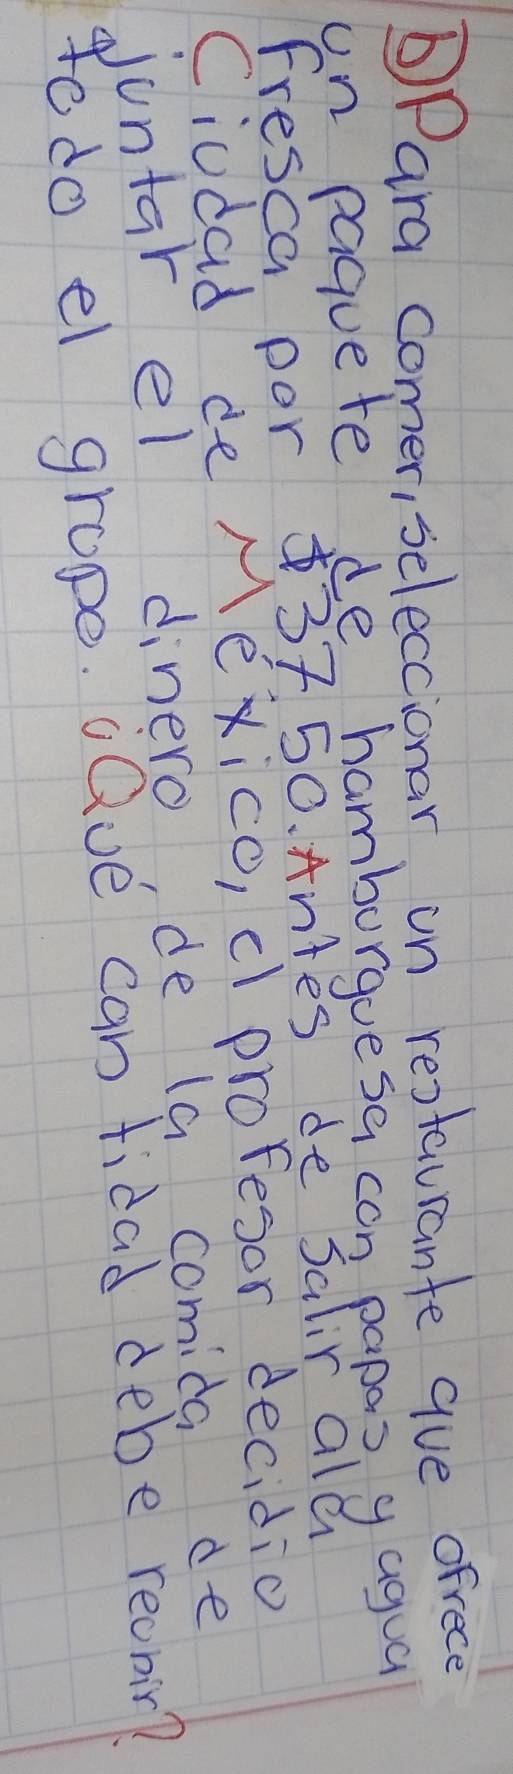 b) Para comer, seleccionar un restaurante que ofrece
un paquete de hamburguesa con papas y agua
Fresca por $37 50. Antes de salir a la
Ciudad de México, el profesor decidio
juntar el dinero de la comida de
todo el grupo. ¿Qué cantidad debe reunir?